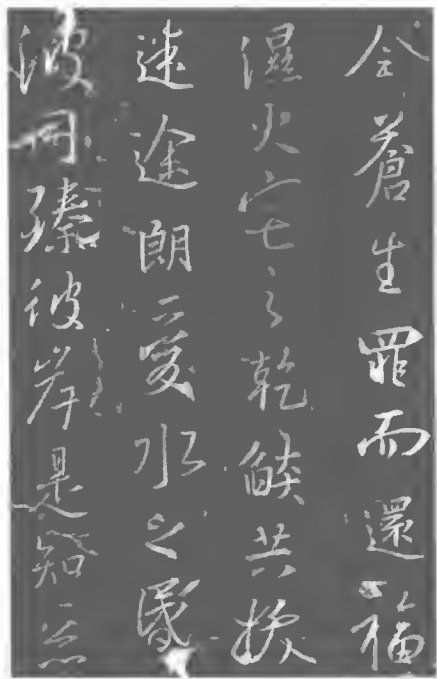 令蒼生罪而還福
濕火宅之乾燄共拔
迷途朗愛水之昏
波同臻彼岸是知惡